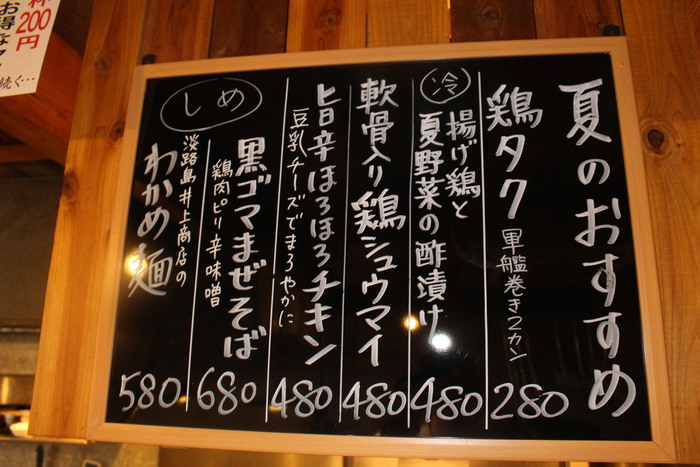 夏のおすすめ
鶏タク
軍艦巻き2カン
280
冷
揚げ鶏と
夏野菜の酢漬け
480
軟骨入り鶏シュウマイ
480
旨辛ほろほろチキン
豆乳チーズでまろやかに
480
しめ
黒ゴマまぜそば
鶏肉ピリ辛味噌
680
淡路島井上商店の
わかめ麺
580
200円
お得な
続く…